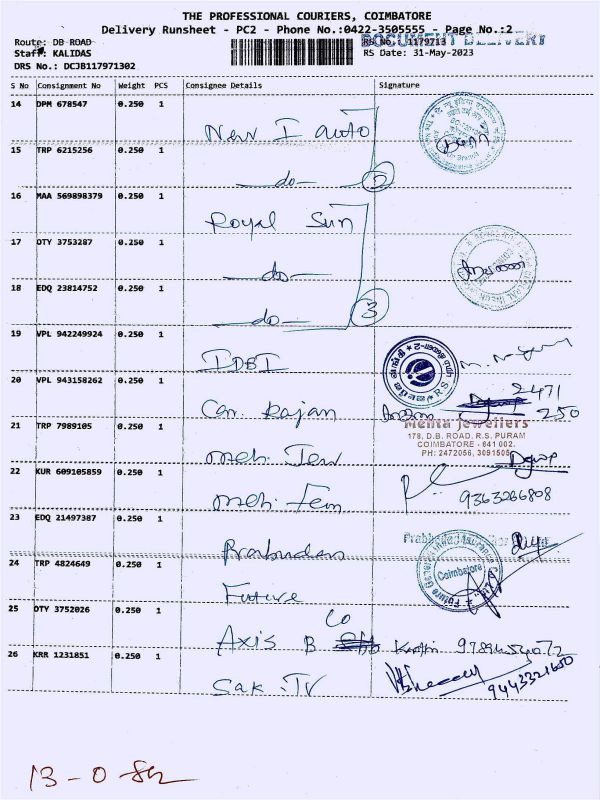 THE PROFESSIONAL COURIERS, COIMBATORE
Delivery Runsheet - PC2 - Phone No.:0422-3505555 - Page No.:2
DOCUMENT DELIVERY
Route: DB ROAD RS No.: 1179713
Staff: KALIDAS RS Date: 31-May-2023
DRS No.: DCJB117971302
S No Consignment No Weight PCS Consignee Details Signature
14 DPM 678547 0.250 1 New I auto
15 TRP 6215256 0.250 1 do 2
16 MAA 569898379 0.250 1 Royal Sun
17 OTY 3753287 0.250 1 do
18 EDQ 23814752 0.250 1 do 3
19 VPL 942249924 0.250 1 IDBI
20 VPL 943158262 0.250 1 Can. Rajan 2471
250
Mehta Jewellers
178, D.B. ROAD, R.S. PURAM
COIMBATORE - 641 002.
PH: 2472056, 3091505
21 TRP 7989105 0.250 1 meh. Jew
22 KUR 609105859 0.250 1 meh. Fem 9363266808
23 EDQ 21497387 0.250 1 Prabudas
24 TRP 4824649 0.250 1 Future Coimbatore
25 OTY 3752026 0.250 1 Axis B Co
26 KRR 1231851 0.250 1 Sak. TV 9443321650
13 - 0